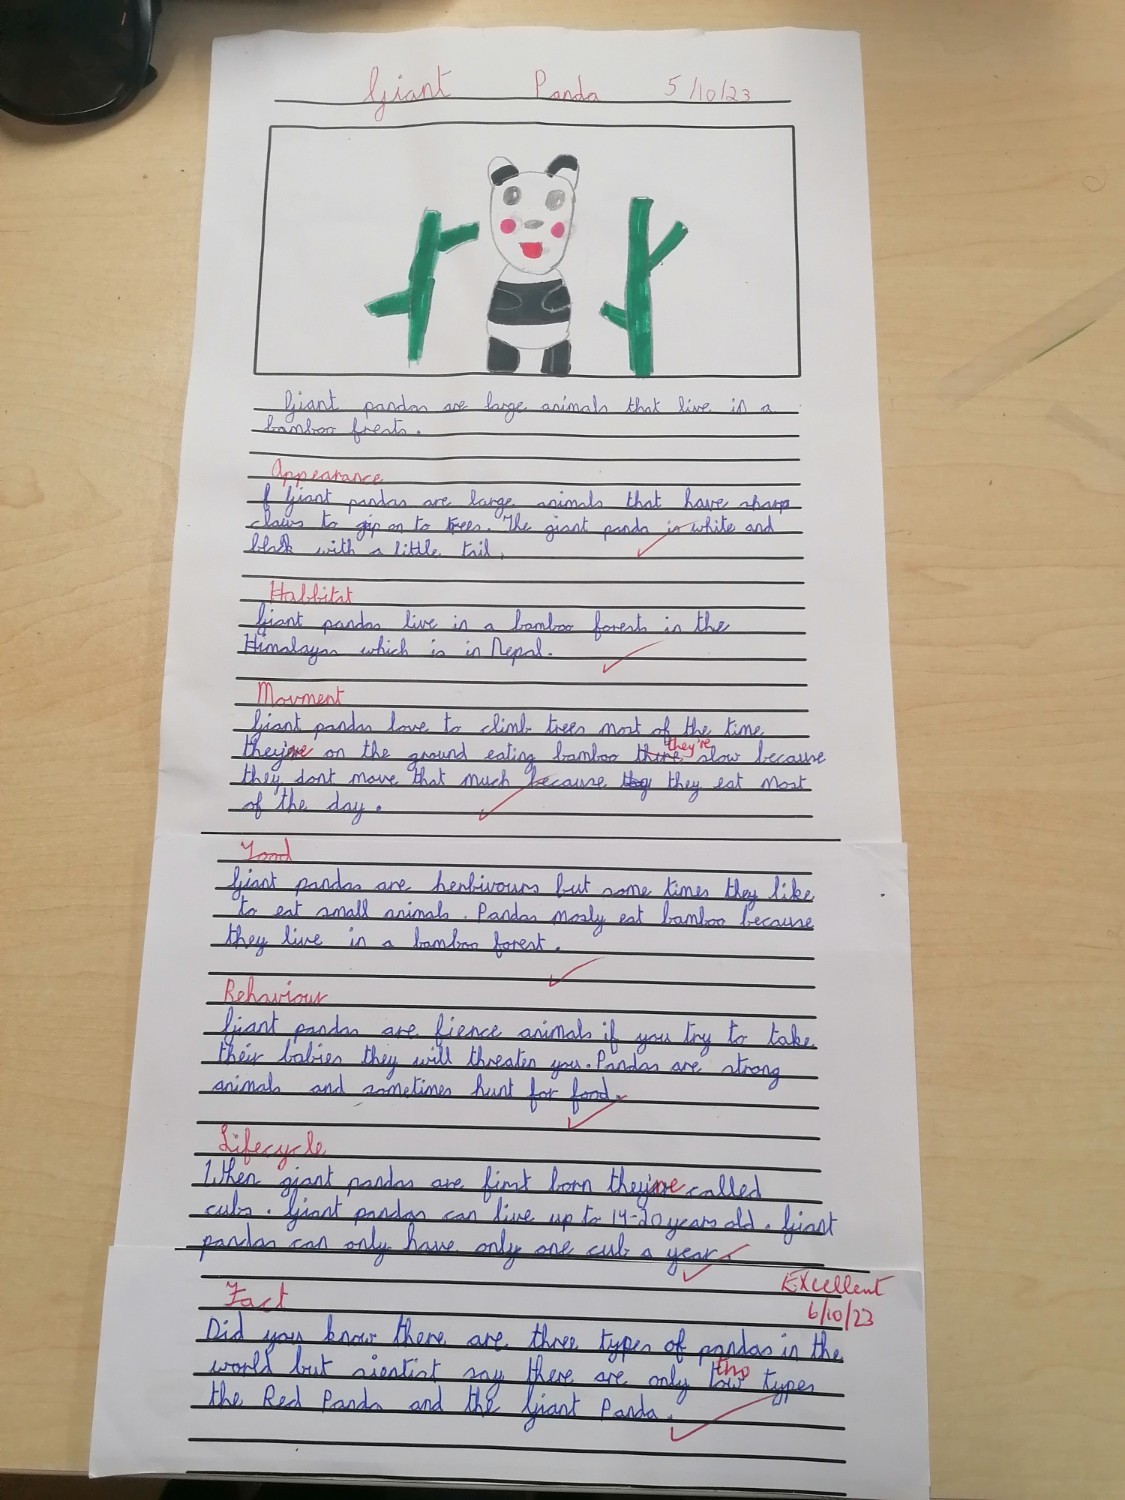 Giant Panda 5/10/23
Giant pandas are large animals that live in a
bamboo frests.
Appearance
Giant pandas are large animals that have sharp
claws to gip on to trees. The giant panda is white and
black with a little tail.
Habbitat
Giant pandas live in a bamboo forests in the
Himalayas which is in Nepal.
Movment
Giant pandas love to climb trees most of the time
they're on the ground eating bamboo they're slow because
they dont move that much because they eat most
of the day.
Food
Giant pandas are herbivours but some times they like
to eat small animals. Pandas mosly eat bamboo because
they live in a bamboo forest.
Behaviour
Giant pandas are fience animals if you try to take
their babies they will threaten you. Pandas are strong
animals and sometimes hunt for food.
Lifecycle
When giant pandas are first born they're called
cubs. Giant pandas can live up to 14-20 years old. Giant
pandas can only have only one cub a year.
Excellent
6/10/23
Fact
Did you know there are three types of pandas in the
world but sientist say there are only two types
the Red Panda and the Giant Panda.